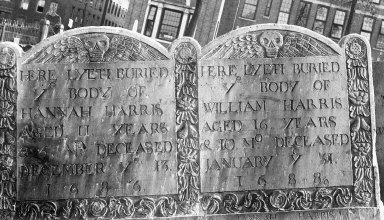 HERE LYETH BURIED
Yᵉ BODY OF
HANNAH HARRIS
AGED 11 YEARS
& Mᵒ DECEASED
DECEMBER Yᵉ
HERE LYETH BURIED
Yᵉ BODY OF
WILLIAM HARRIS
AGED 16 YEARS
& 10 Mᵒ DECEASED
JANUARY Yᵉ 31.